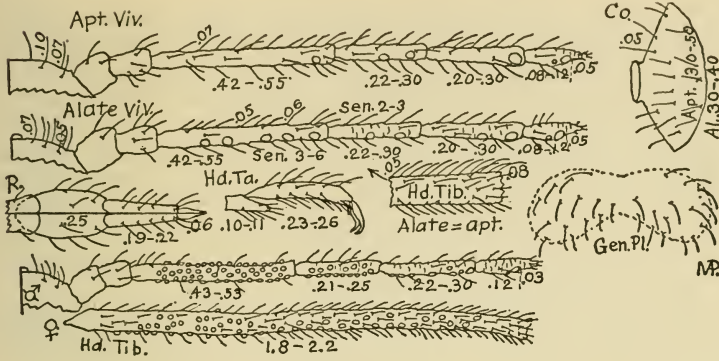 Apt. Viv.
.10
.07
.07
.42-.55
.22-.30
.20-.30
.08-.12
.05
Co.
.05
Apt. .30-.50
Al. .30-.40
Alate Viv.
.07
.05
.05
.06
Sen. 2-3
.42-.55
Sen. 3-6
.22-.30
.20-.30
.08-.12
.05
R.
.25
.19-.22
.06
Hd. Ta.
.10-.11
.23-.26
.05
.08
Hd. Tib.
Alate = apt.
Gen. Pl.
♂
.43-.53
.21-.25
.22-.30
.12
.03
♀
Hd. Tib.
1.8-2.2